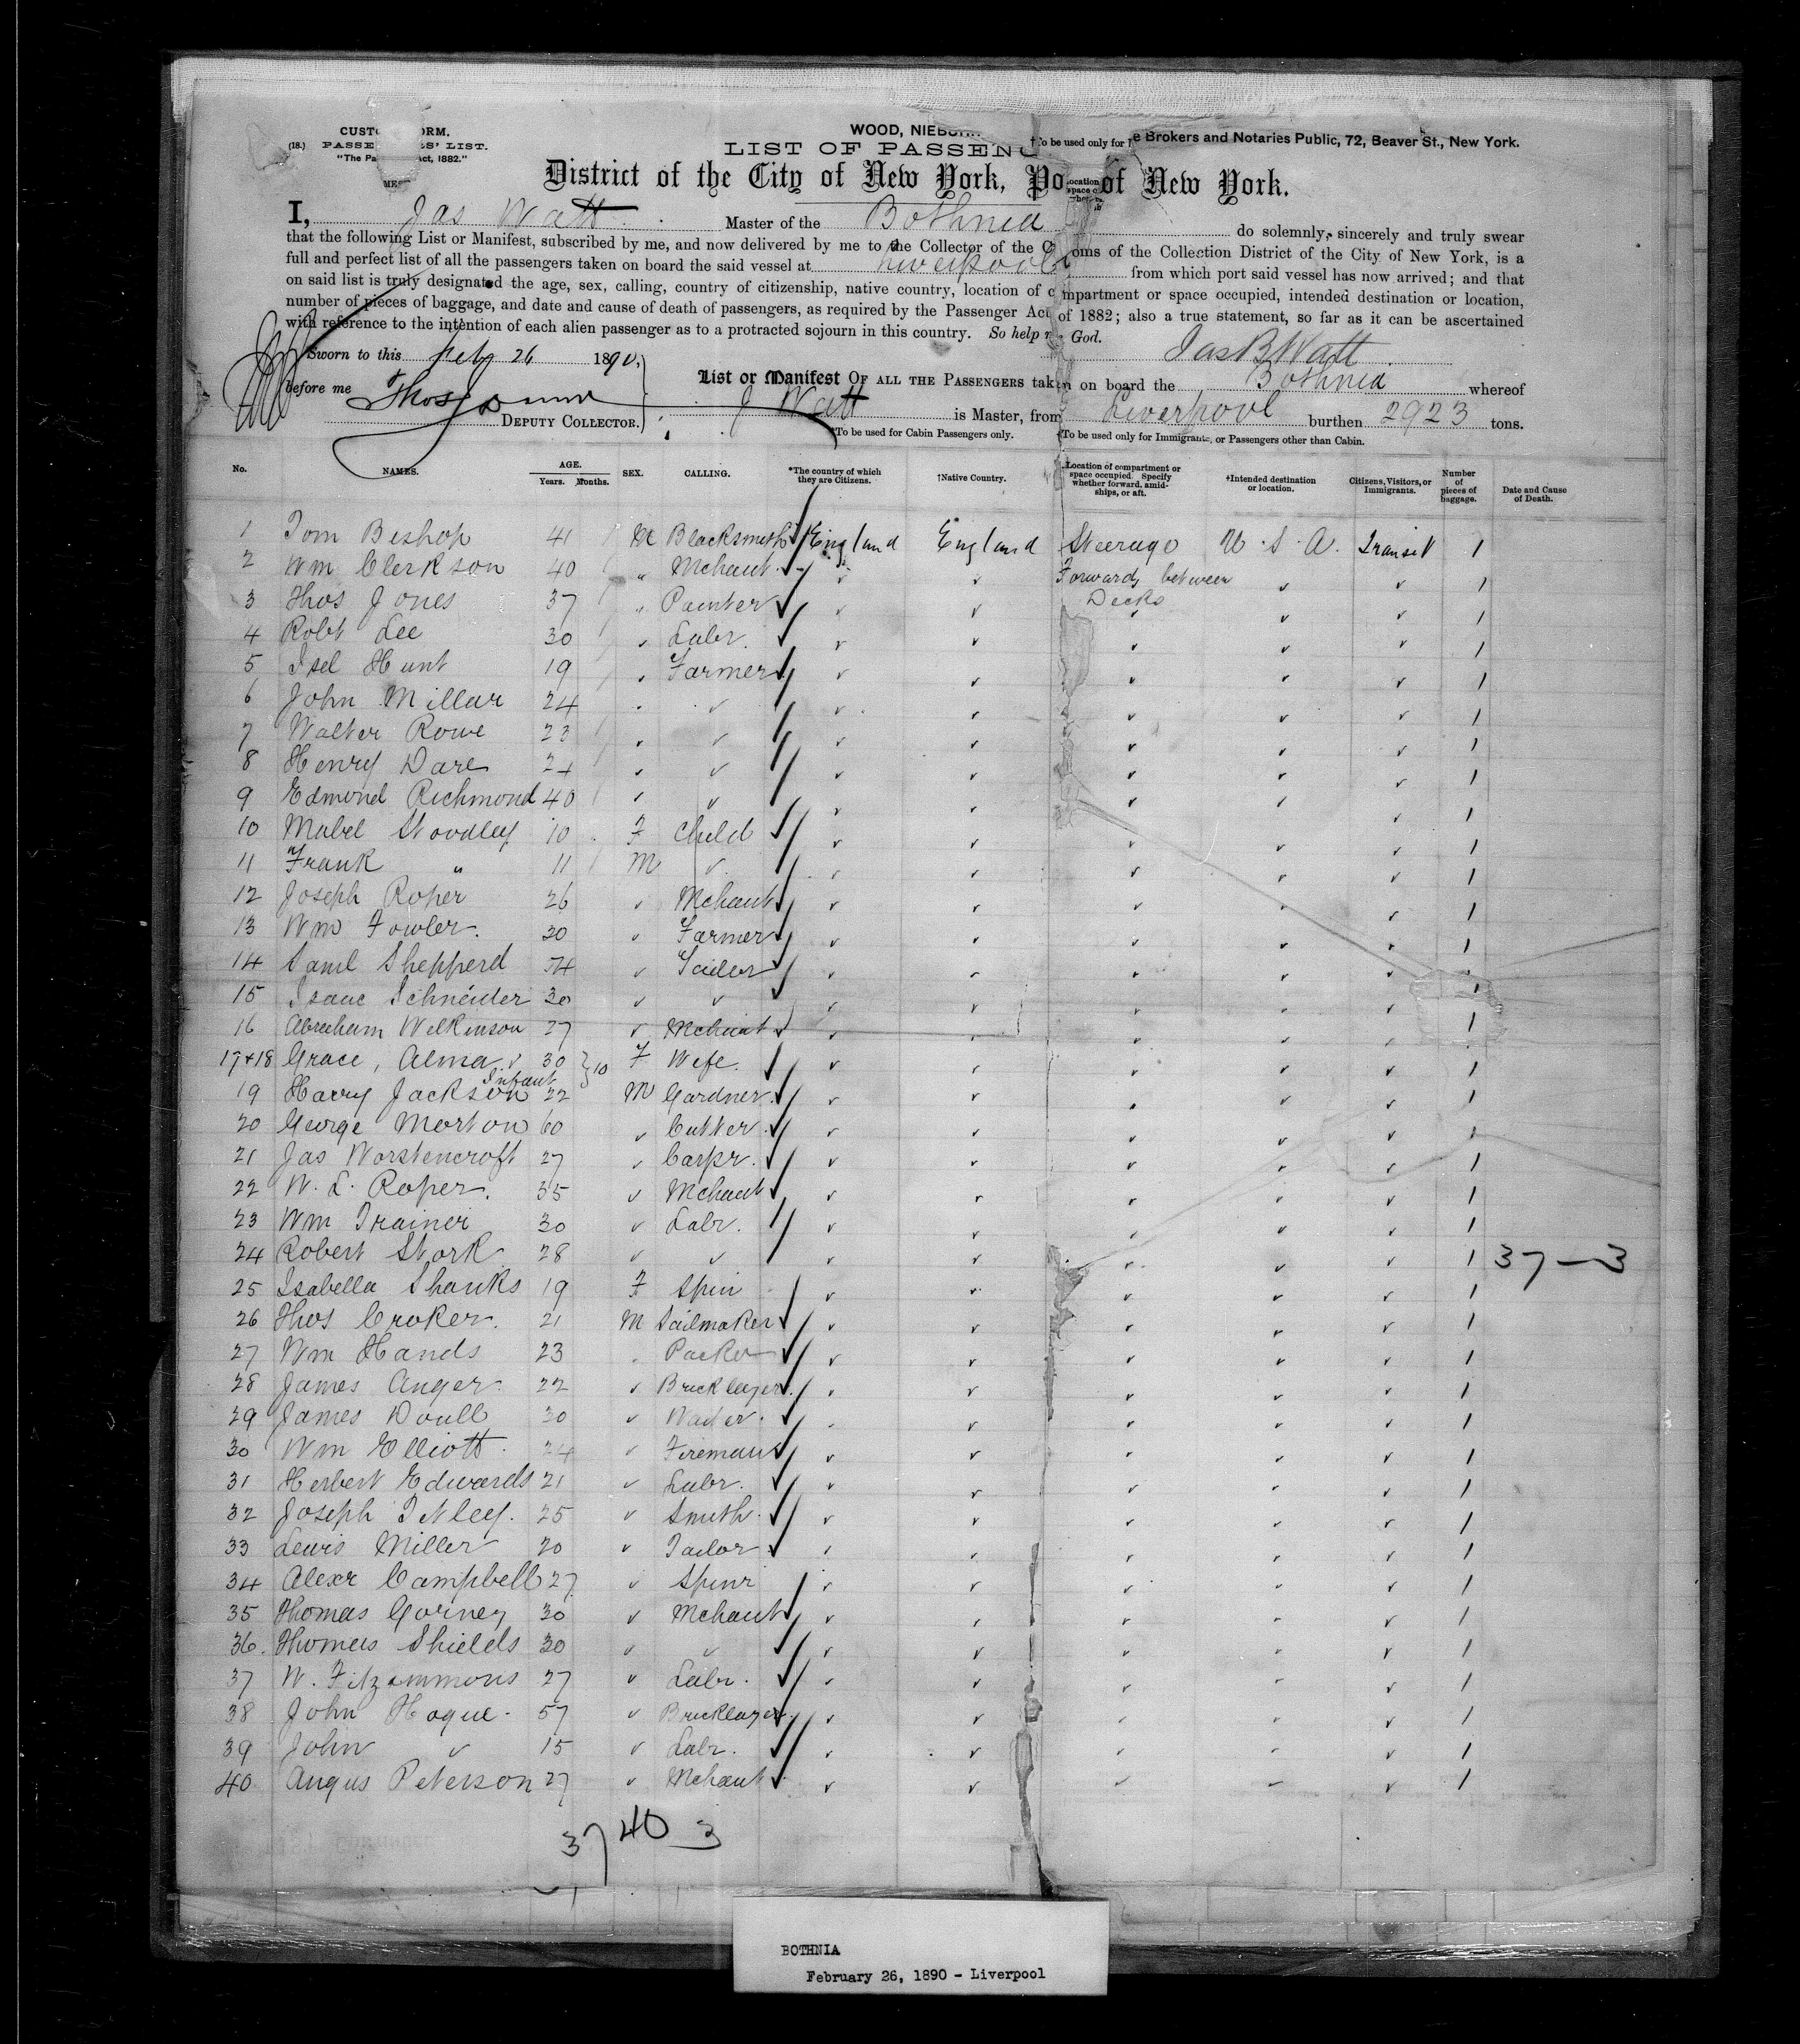 CUST ORM.
(18.) PASSE S' LIST.
"The Pa ct, 1882."
WOOD, NIEB
e Brokers and Notaries Public, 72, Beaver St., New York.
LIST OF PASSENG
†To be used only for
District of the City of New York, Po of New York.
I, Jas Watt Master of the Bothnia do solemnly, sincerely and truly swear
that the following List or Manifest, subscribed by me, and now delivered by me to the Collector of the C oms of the Collection District of the City of New York, is a
full and perfect list of all the passengers taken on board the said vessel at Liverpool from which port said vessel has now arrived; and that
on said list is truly designated the age, sex, calling, country of citizenship, native country, location of c mpartment or space occupied, intended destination or location,
number of pieces of baggage, and date and cause of death of passengers, as required by the Passenger Act of 1882; also a true statement, so far as it can be ascertained
with reference to the intention of each alien passenger as to a protracted sojourn in this country. So help God.
Jas B Watt
Sworn to this Feby 26 1890,
before me Thos
DEPUTY COLLECTOR.
List or Manifest OF ALL THE PASSENGERS taken on board the Bothnia whereof
J Watt is Master, from Liverpool burthen 2923 tons.
*To be used for Cabin Passengers only. †To be used only for Immigrants, or Passengers other than Cabin.
No. NAMES. AGE. Years. Months. SEX. CALLING. *The country of which they are Citizens. †Native Country. Location of compartment or space occupied. Specify whether forward, amidships, or aft. ‡Intended destination or location. Citizens, Visitors, or Immigrants. Number of pieces of baggage. Date and Cause of Death.
1 Tom Bishop 41 M Blacksmith England England Steerage U.S.A. Transit 1
2 Wm Clerkson 40 " Mchant Forwards between 1
Decks
3 Thos Jones 37 " Painter 1
4 Robt Lee 30 Labr. 1
5 Isel Hunt 19 Farmer 1
6 John Millar 24 1
7 Walter Rowe 23 1
8 Henry Dare 24 1
9 Edmond Richmond 40 1
10 Mabel Stoodley 10 F Child 1
11 Frank " 11 M 1
12 Joseph Roper 26 Mchant 1
13 Wm Fowler. 30 Farmer 1
14 Saml Shepperd Tailor 1
15 Isaac Schneider 30 1
16 Abraham Wilkinson 27 Mchant 1
17+18 Grace, Alma 30 } 10 F Wife. 1
Infant
19 Harry Jackson 22 M Gardner. 1
20 George Morton 60 Cutter. 1
21 Jas Worstencroft 27 Carpr. 1
22 W. L. Roper. 35 Mchant 1
23 Wm Trainer 30 Labr. 1
24 Robert Stork 28 1 37—3
25 Isabella Shanks 19 F Spin 1
26 Thos Croker. 21 M Sailmaker 1
27 Wm Hands 23 Packer 1
28 James Anger. 22 Bricklayer. 1
29 James Doull 30 Waiter. 1
30 Wm Elliott. 24 Fireman 1
31 Herbert Edwards 21 Labr. 1
32 Joseph Titley. 25 Smith. 1
33 Lewis Miller 20 Tailor 1
34 Alexr Campbell 27 Spinr 1
35 Thomas Gorney 30 Mchant 1
36. Thomas Shields 30 1
37 W. Fitzsimmons 27 Labr. 1
38 John Hogue. 57 Bricklayer. 1
39 John 15 Labr. 1
40 Angus Peterson 27 Mchant 1
37 40 3
BOTHNIA
February 26, 1890 - Liverpool